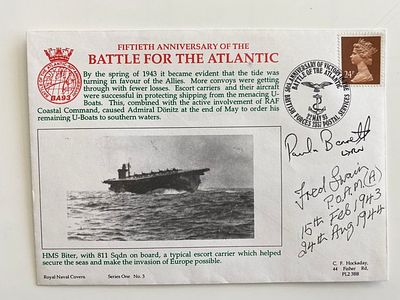 FIFTIETH ANNIVERSARY OF THE
BATTLE FOR THE ATLANTIC
BA93
By the spring of 1943 it became evident that the tide was
turning in favour of the Allies. More convoys were getting
through with fewer losses. Escort carriers and their aircraft
were successful in protecting shipping from the menacing U-
Boats. This, combined with the active involvement of RAF
Coastal Command, caused Admiral Dönitz at the end of May to order
his remaining U-Boats to southern waters.
24P
50th ANNIVERSARY OF VICTORY IN THE
BATTLE OF THE ATLANTIC
27 MAY 93
BRITISH FORCES 2357 POSTAL SERVICES
Fred Swain
P.O.A.M.(A)
15th Feb 1943
24th Aug 1944
HMS Biter, with 811 Sqdn on board, a typical escort carrier which helped
secure the seas and make the invasion of Europe possible.
Royal Naval Covers Series One No. 3
C. F. Hockaday,
44 Fisher Rd,
PL2 3BB